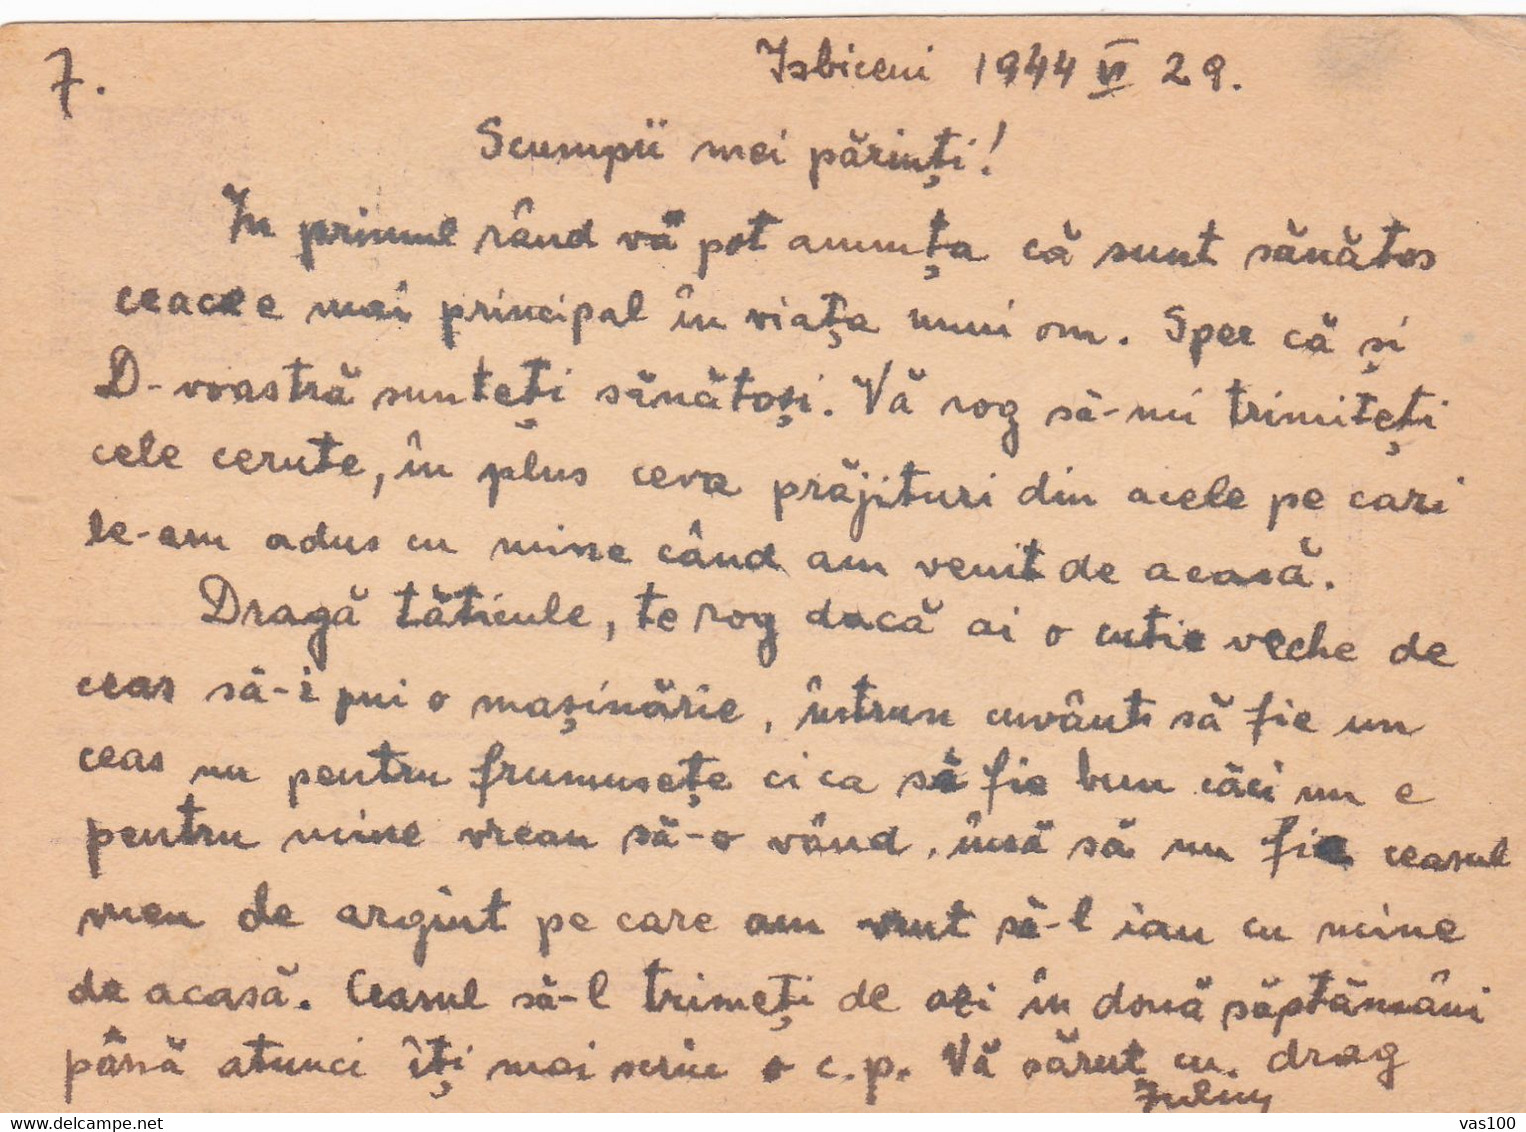 7.
Isbiceni 1944 VI 29.
Scumpii mei părinți!
In primul rând vă pot anunța că sunt sănătos
ceace e mai principal în viața unui om. Sper că și
D-voastră sunteți sănătoși. Vă rog să-mi trimiteți
cele cerute, în plus ceva prăjituri din acele pe cari
le-am adus cu mine când am venit de acasă.
Dragă tăticule, te rog dacă ai o cutie veche de
ceas să-i pui o mașinărie, într'un cuvânt să fie un
ceas nu pentru frumusețe ci ca să fie bun căci nu e
pentru mine vreau să-o vând, însă să nu fie ceasul
meu de argint pe care am vrut să-l iau cu mine
de acasă. Ceasul să-l trimeți de azi în două săptămâni
până atunci îți mai scriu o c.p. Vă sărut cu drag
vas100